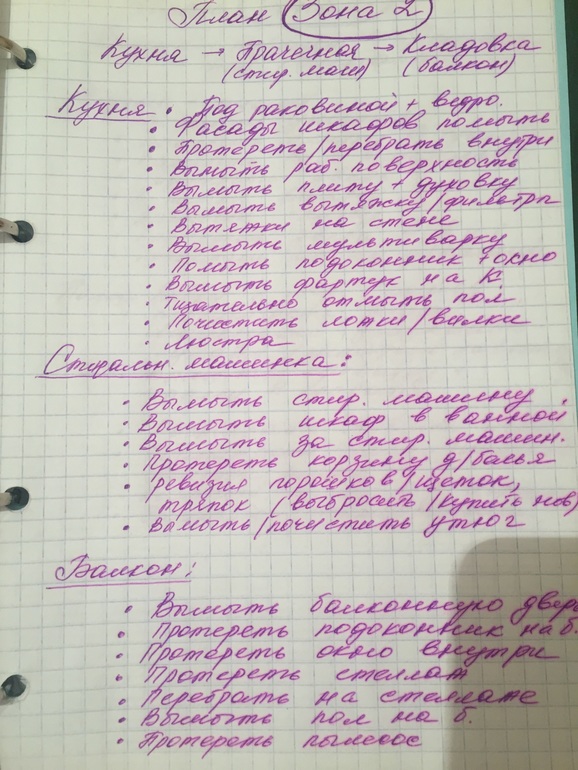 План Зона 2
Кухня → Прачечная → Кладовка
(стир. маш) (балкон)
Кухня • Под раковиной + ведро.
• Фасады шкафов помыть
• Протереть/перебрать внутри
• Вымыть раб. поверхность
• Вымыть плиту + духовку
• Вымыть вытяжку/фильтры
• Вытяжки на стене
• Вымыть мультиварку
• Помыть подоконник + окно
• Вымыть фартук на К.
• Тщательно отмыть пол
• Почистить лотки/вилки
• Люстра
Стиральн. машинка:
• Вымыть стир. машину
• Вымыть шкаф в ванной
• Вымыть за стир. машин.
• Протереть корзину д/балья
• ревизия порошков/щеток,
тряпок (выбросить/купить нов)
• Вымыть/почистить утюг
Балкон:
• Вымыть балконную двер
• Протереть подоконник на б.
• Протереть окно внутри
• Протереть стеллаж
• Перебрать на стеллаже
• Вымыть пол на б.
• Протереть пылесос